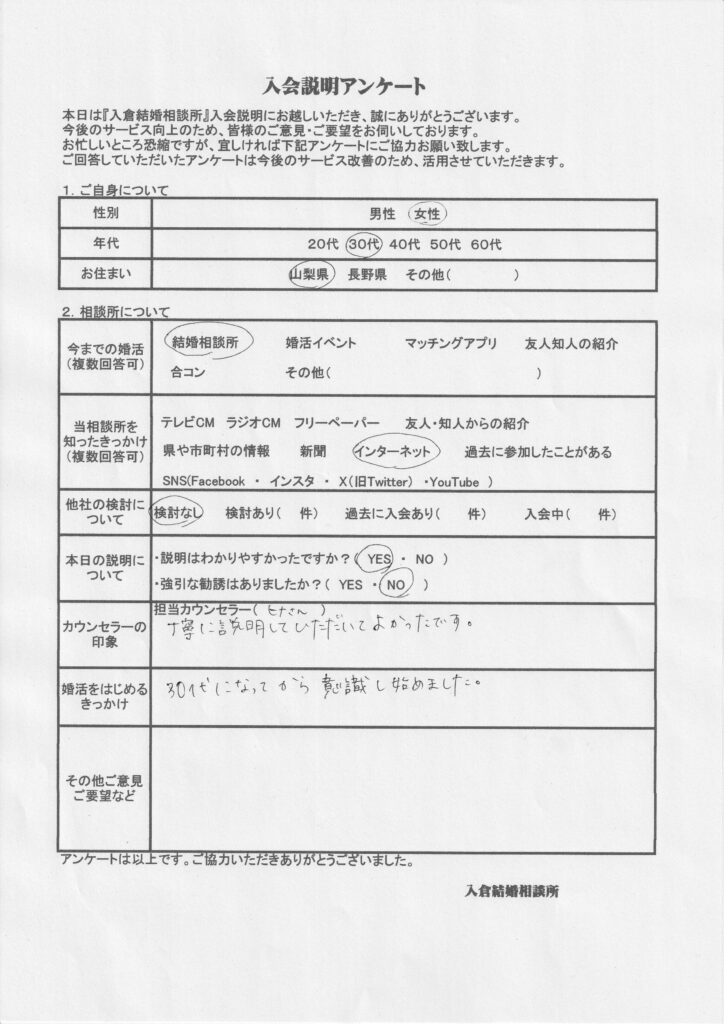 入会説明アンケート
本日は『入倉結婚相談所』入会説明にお越しいただき、誠にありがとうございます。
今後のサービス向上のため、皆様のご意見・ご要望をお伺いしております。
お忙しいところ恐縮ですが、宜しければ下記アンケートにご協力お願い致します。
ご回答していただいたアンケートは今後のサービス改善のため、活用させていただきます。
1. ご自身について
性別 男性 女性
年代 20代 30代 40代 50代 60代
お住まい 山梨県 長野県 その他( )
2. 相談所について
今までの婚活
(複数回答可)
結婚相談所 婚活イベント マッチングアプリ 友人知人の紹介
合コン その他( )
当相談所を
知ったきっかけ
(複数回答可)
テレビCM ラジオCM フリーペーパー 友人・知人からの紹介
県や市町村の情報 新聞 インターネット 過去に参加したことがある
SNS(Facebook ・ インスタ ・ X(旧Twitter) ・YouTube )
他社の検討に
ついて
検討なし 検討あり( 件) 過去に入会あり( 件) 入会中( 件)
本日の説明に
ついて
・説明はわかりやすかったですか?( YES ・ NO )
・強引な勧誘はありましたか?( YES ・ NO )
カウンセラーの
印象
担当カウンセラー( さん )
丁寧に説明していただいてよかったです。
婚活をはじめる
きっかけ
30代になってから意識し始めました。
その他ご意見
ご要望など
アンケートは以上です。ご協力いただきありがとうございました。
入倉結婚相談所